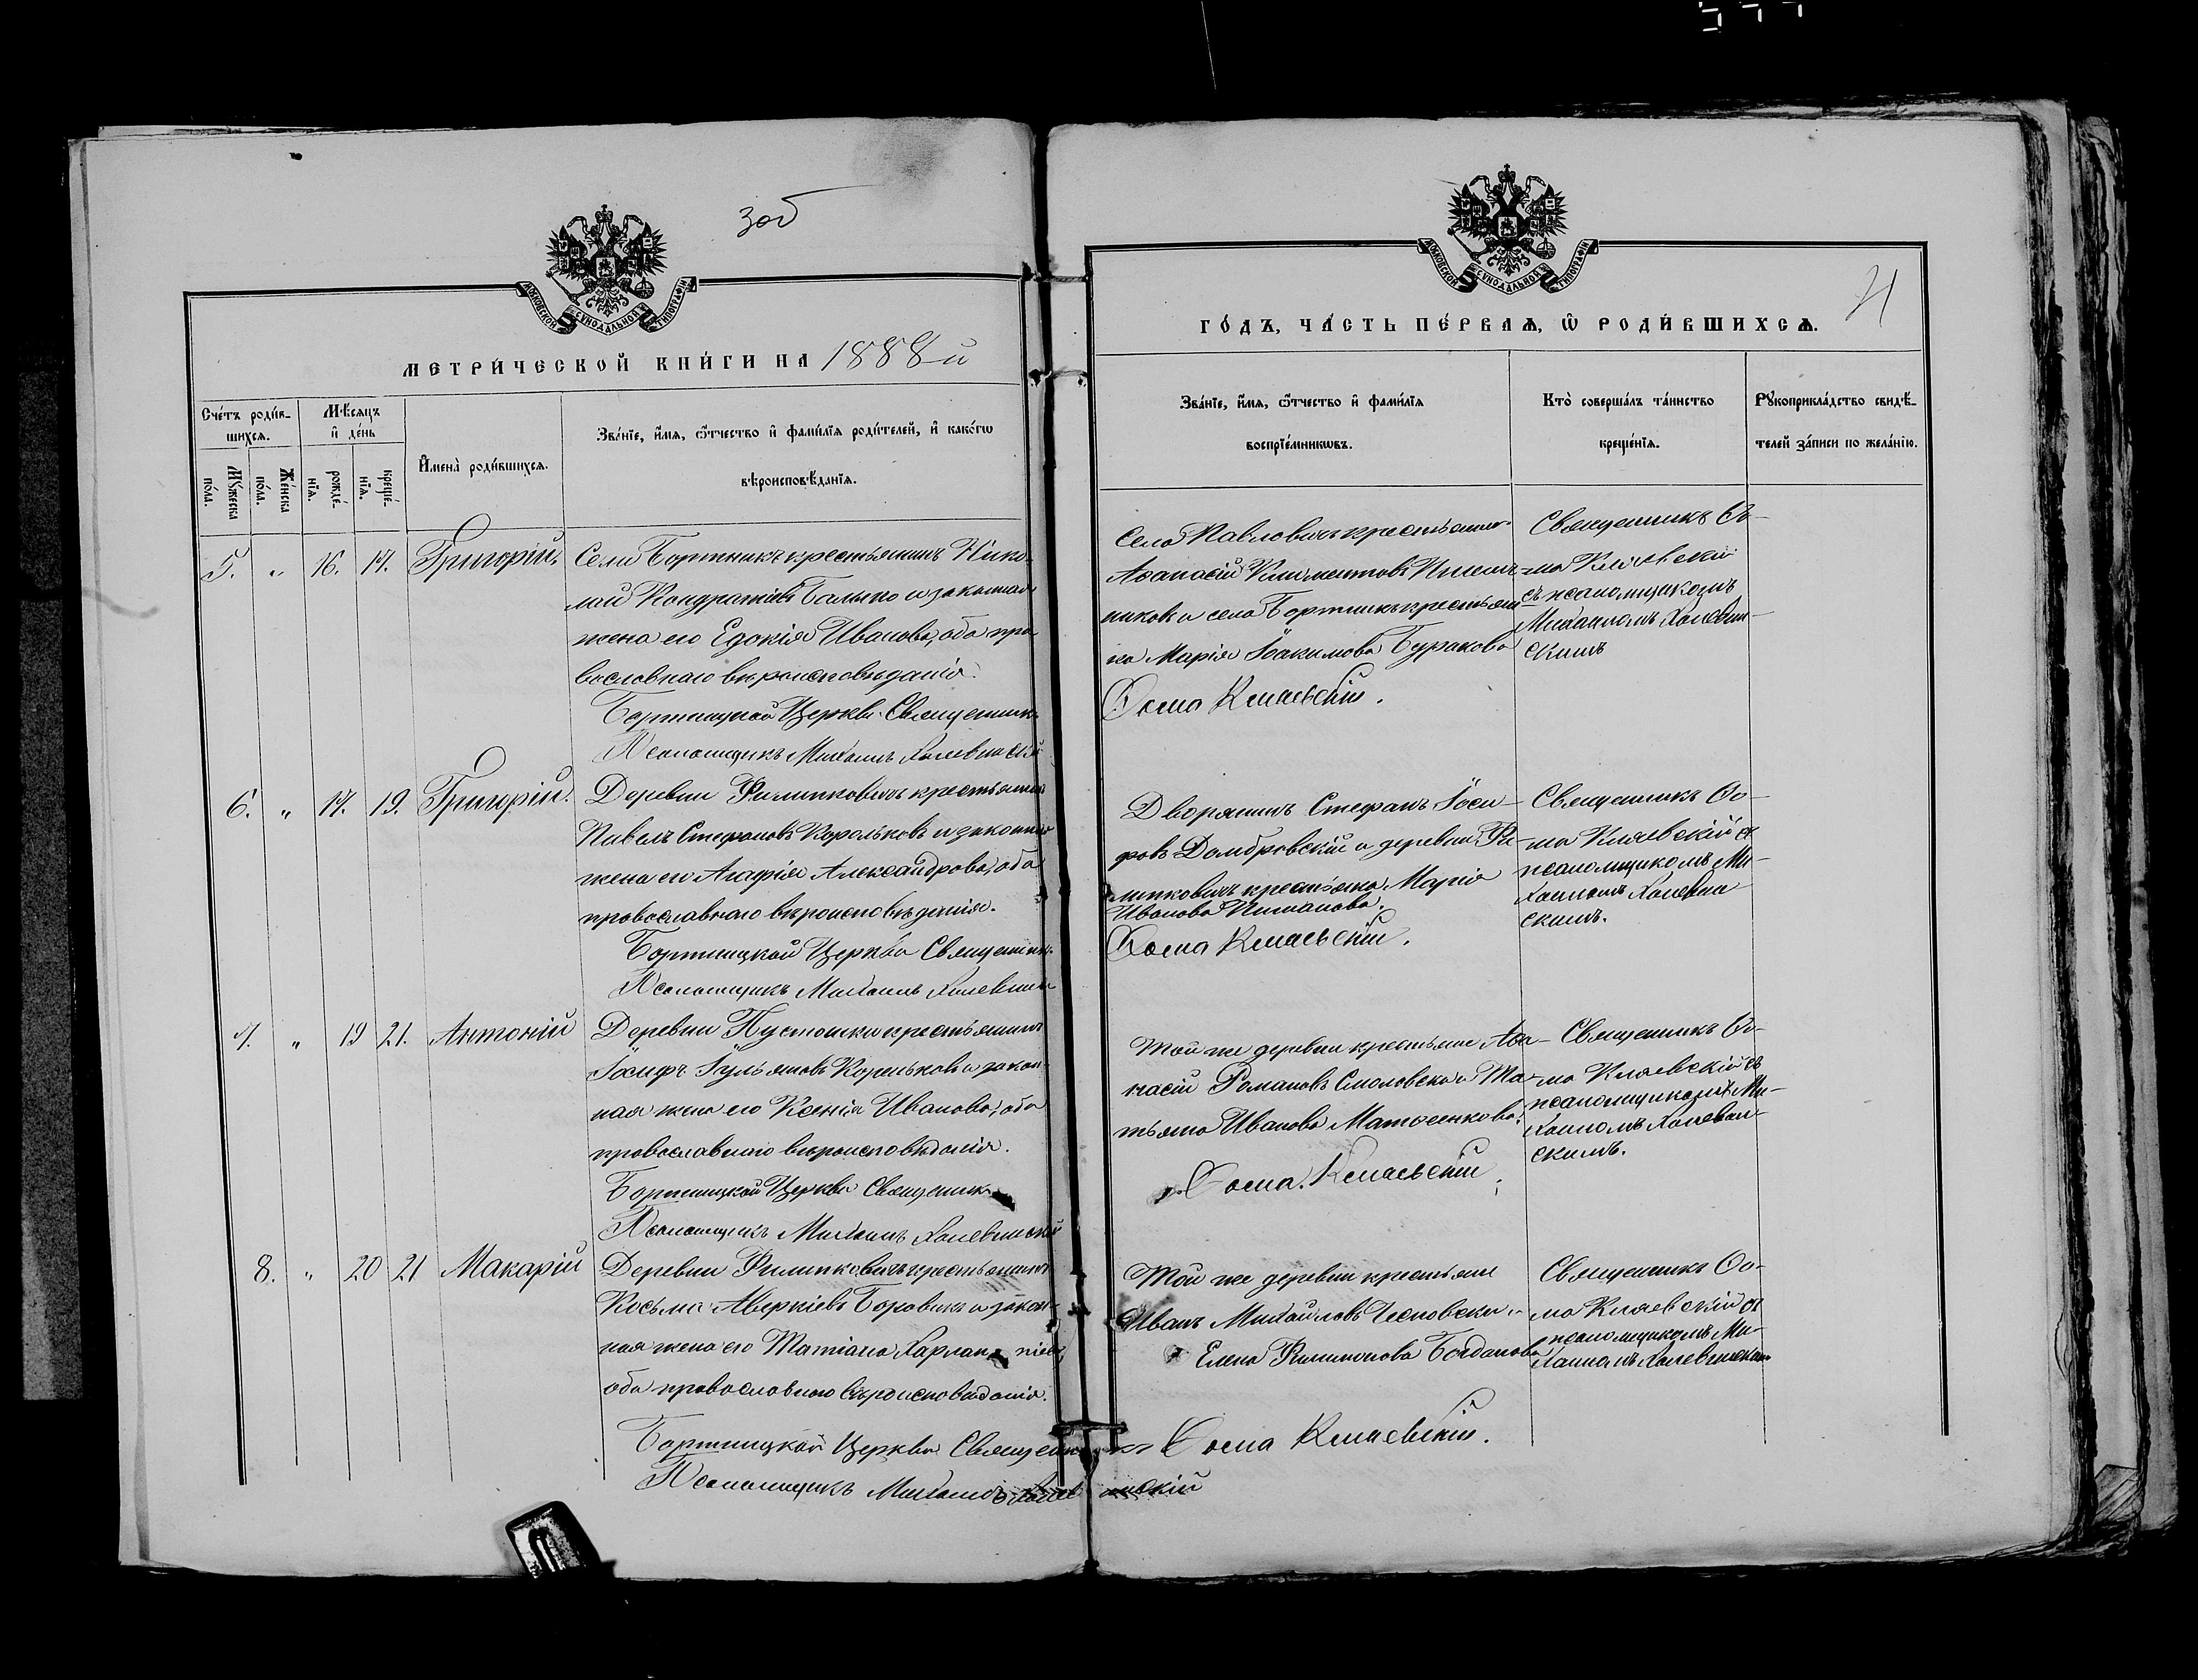 зоб
МОСКОВСКОЙ СѴНОДАЛЬНОЙ ТИПОГРАФІИ
МЕТРИ́ЧЕСКОЙ КНИ́ГИ НА 1888й
Сче́тъ роди́в-
шихся.
Мѣсяцъ
и҆ де́нь
И҆мена̀ роди́вшихся.
Зва́нїе, и҆́мя, ѻ҆́тчество и҆ фами́лїя роди́телей, и҆ како́гѡ
вѣроисповѣ́данїя.
Мꙋ́жеска
по́ла.
Же́нска
по́ла.
рожде́-
нїя.
креще́-
нїя.
5. " 16. 17. Григорій.
Села Бортникъ крестьянинъ Нико-
лай Кондратіевъ Балыко и законная
жена его Едокія Иванова, оба пра
вославнаго вѣроисповѣданія.
Бортницкой Церкви Священникъ
Псаломщикъ Михаилъ
6. " 17. 19. Григорій.
Деревни Филипковичъ крестьянинъ
Павелъ Стефановъ Корольковъ и законная
жена его Агафія Александрова, оба
православнаго вѣроисповѣданія.
Бортницкой Церкви Священникъ
Псаломщикъ Михаилъ
7. " 19 21. Антоній
Деревни Пустошки крестьянинъ
Іосифъ Іульяновъ Кореньковъ и закон-
ная жена его Ксенія Иванова, оба
православнаго вѣроисповѣданія.
Бортницкой Церкви Священникъ
Псаломщикъ Михаилъ
8. " 20 21 Макарій
Деревни Филипковичъ крестьянинъ
Косьма Аверкіевъ Боровикъ и закон-
ная жена его Татіана
оба православнаго вѣроисповѣданія.
Бортницкой Церкви Священникъ Ѳома Кляевскій.
Псаломщикъ Михаилъ
МОСКОВСКОЙ СѴНОДАЛЬНОЙ ТИПОГРАФІИ
ГО́ДЪ, ЧА́СТЬ ПЕ́РВАѦ, Ѡ҆ РОДИ́ВШИХСѦ.
Зва́нїе, и҆́мя, ѻ҆́тчество и҆ фами́лїя
воспрїе́мникѡвъ.
Кто̀ соверша́лъ та́инство
креще́нїя.
Рꙋкоприкла́дство свидѣ́-
телей за́писи по жела́нїю.
Села Павловичъ крестьянинъ
Аѳанасій Климентовъ
и села Бортникъ крестьян
ка Марія Іоакимова Буракова
Ѳома Кляевскій.
Священникъ Ѳо-
ма Кляевскій
съ псаломщикомъ
Михаиломъ
скимъ
Дворянинъ Стефанъ Іоси-
фовъ Домбровскій и деревни Фи-
липковичъ крестьянка Марія
Иванова
Ѳома Кляевскій.
Священникъ Ѳо-
ма Кляевскій съ
псаломщикомъ Ми-
хаиломъ
скимъ.
Той же деревни крестьяне Аѳа-
насій Романовъ и Та-
тьяна Иванова Матосенкова.
Ѳома Кляевскій
Священникъ Ѳо-
ма Кляевскій съ
псаломщикомъ Ми-
хаиломъ
скимъ.
Той же деревни крестьяне
Иванъ Михайловъ
Елена Филимонова Богданова
Священникъ Ѳо-
ма Кляевскій съ
псаломщикомъ Ми-
хаиломъ